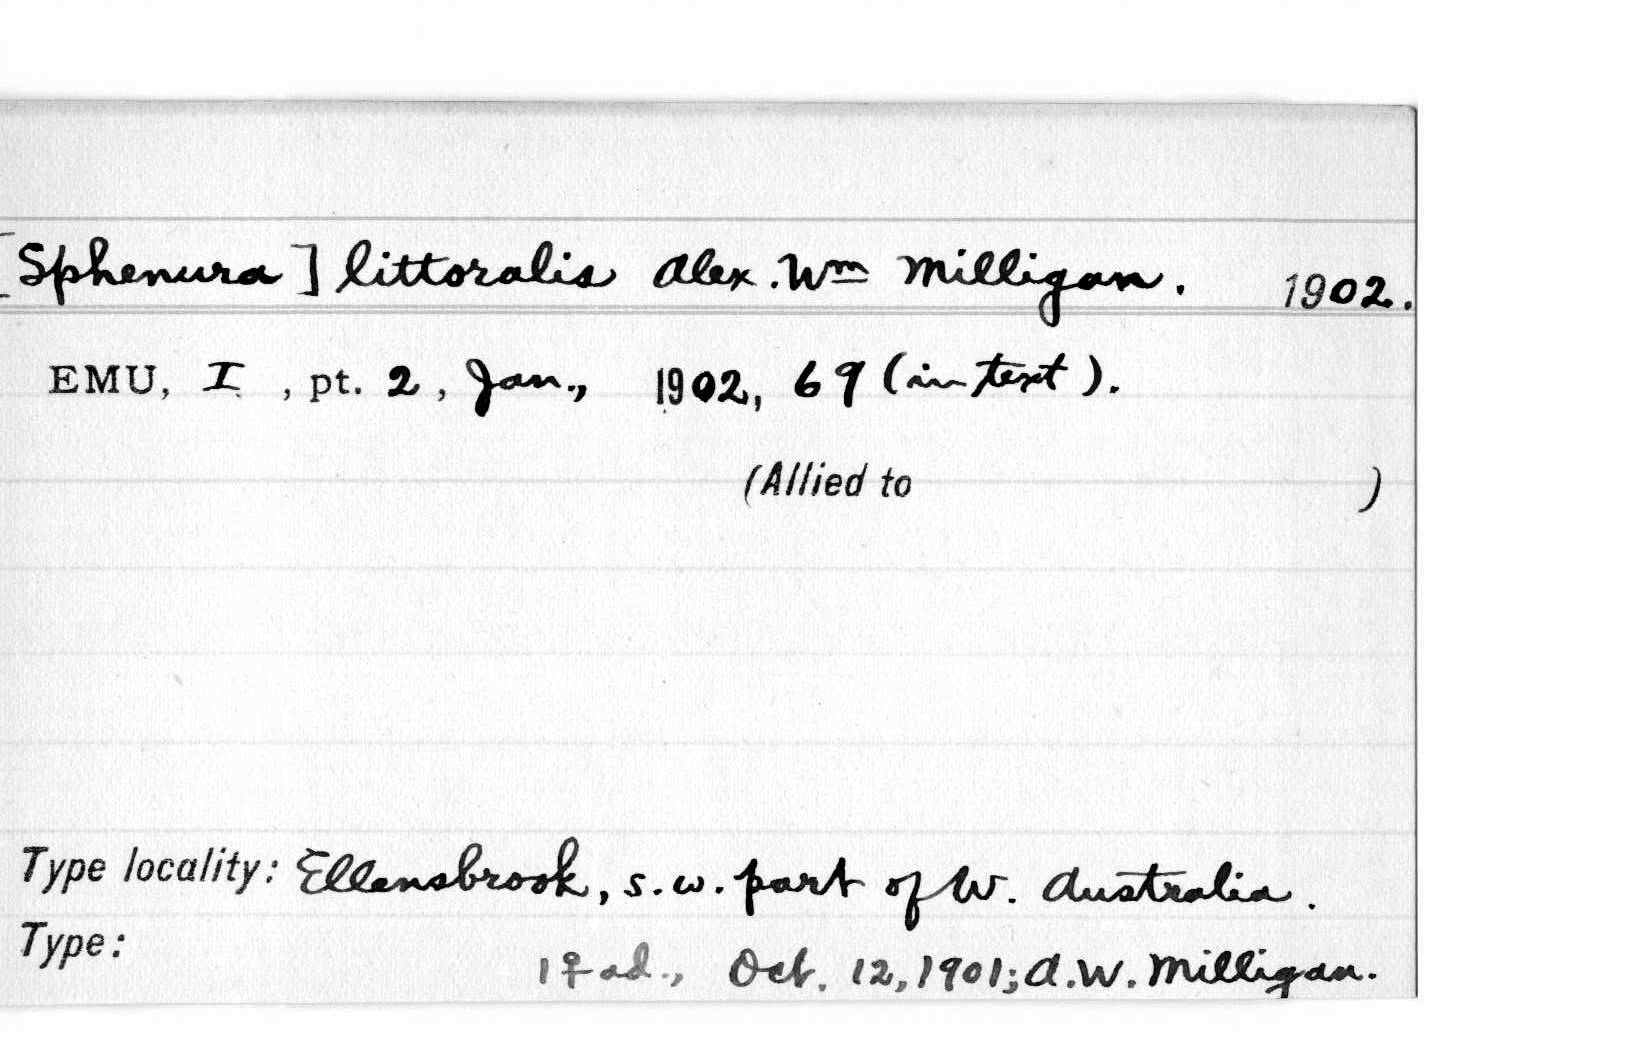 [Sphenura] littoralis Alex. Wm Milligan. 1902.
EMU, I , pt. 2, Jan., 1902, 69 (in text).
(Allied to )
Type locality: Ellensbrook, s.w. part of W. Australia.
Type:
1 ♀ ad., Oct. 12, 1901; A.W. Milligan.